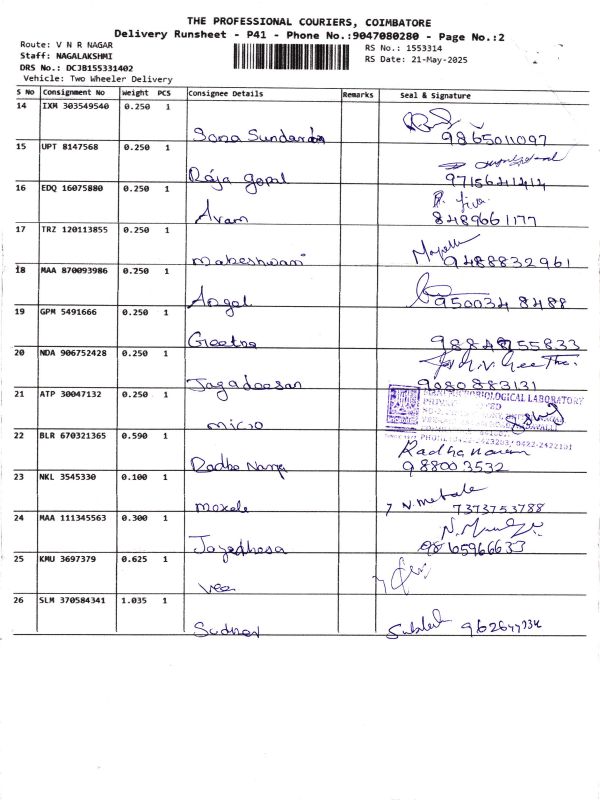 THE PROFESSIONAL COURIERS, COIMBATORE
Delivery Runsheet - P41 - Phone No.:9047080280 - Page No.:2
Route: V N R NAGAR
RS No.: 1553314
Staff: NAGALAKSHMI
RS Date: 21-May-2025
DRS No.: DCJB155331402
Vehicle: Two Wheeler Delivery
S No Consignment No Weight PCS Consignee Details Remarks Seal & Signature
14 IXM 303549540 0.250 1
Sona Sundaram 9865011097
15 UPT 8147568 0.250 1
Raja gopal 9715641414
16 EDQ 16075880 0.250 1
Avam 8489661177
17 TRZ 120113855 0.250 1
maheshwari 9488832961
18 MAA 870093986 0.250 1
Angel 9500348488
19 GPM 5491666 0.250 1
Geetha
20 NDA 906752428 0.250 1
Jagadeesan 9080883131
21 ATP 30047132 0.250 1
micro
MICROBIOLOGICAL LABORATORY
22 BLR 670321365 0.590 1
Radha
988003532
23 NKL 3545330 0.100 1
7373753788
24 MAA 111345563 0.300 1
9865966633
25 KMU 3697379 0.625 1
Vee
26 SLM 370584341 1.035 1